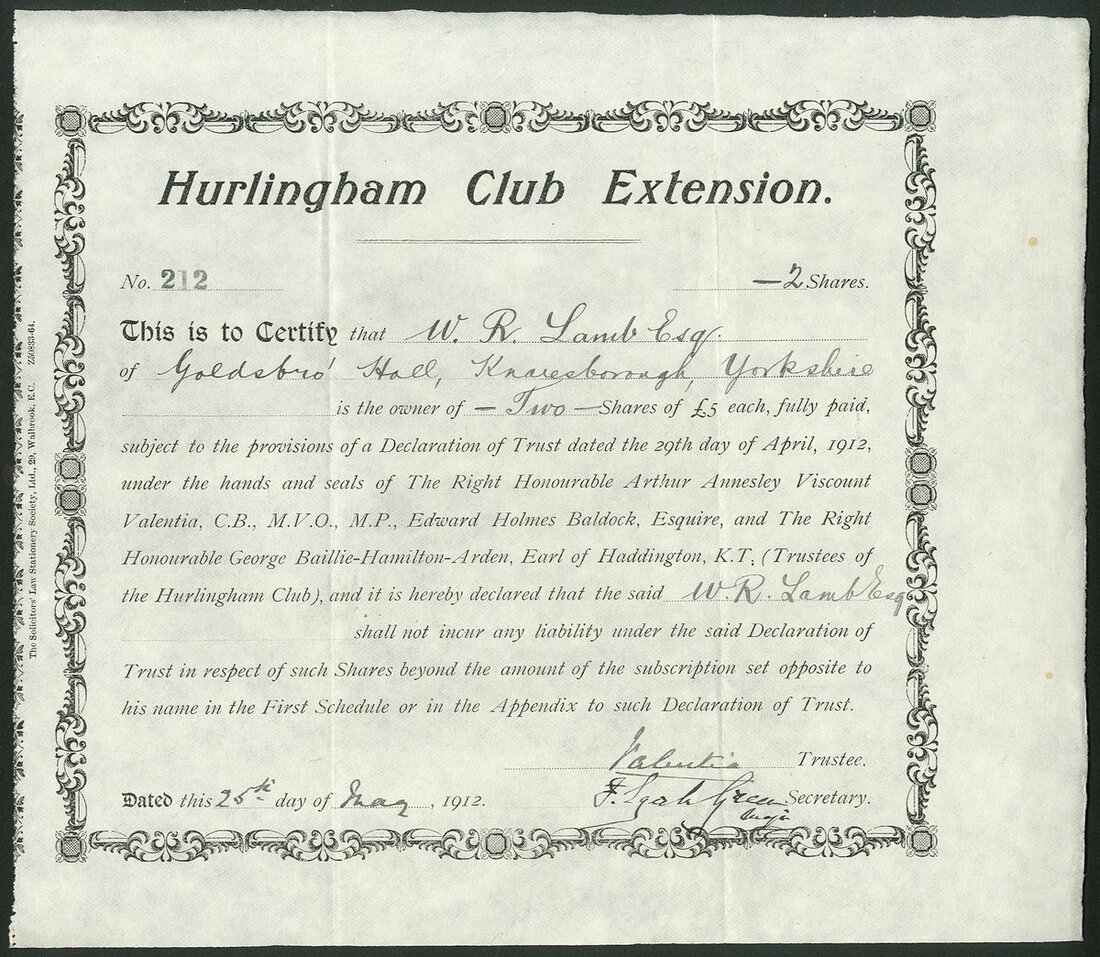 Hurlingham Club Extension.
No. 212
— 2 Shares.
This is to Certify that W. R. Lamb Esq.
of Goldsbro' Hall, Knaresborough, Yorkshire
is the owner of — Two — Shares of £5 each, fully paid,
subject to the provisions of a Declaration of Trust dated the 29th day of April, 1912,
under the hands and seals of The Right Honourable Arthur Annesley Viscount
Valentia, C.B., M.V.O., M.P., Edward Holmes Baldock, Esquire, and The Right
Honourable George Baillie-Hamilton-Arden, Earl of Haddington, K.T. (Trustees of
the Hurlingham Club), and it is hereby declared that the said W. R. Lamb Esq
shall not incur any liability under the said Declaration of
Trust in respect of such Shares beyond the amount of the subscription set opposite to
his name in the First Schedule or in the Appendix to such Declaration of Trust.
Valentia Trustee.
Dated this 25th day of May, 1912.
F. Green Secretary.
The Solicitors' Law Stationery Society, Ltd., 29, Walbrook, E.C. Z50833-64.